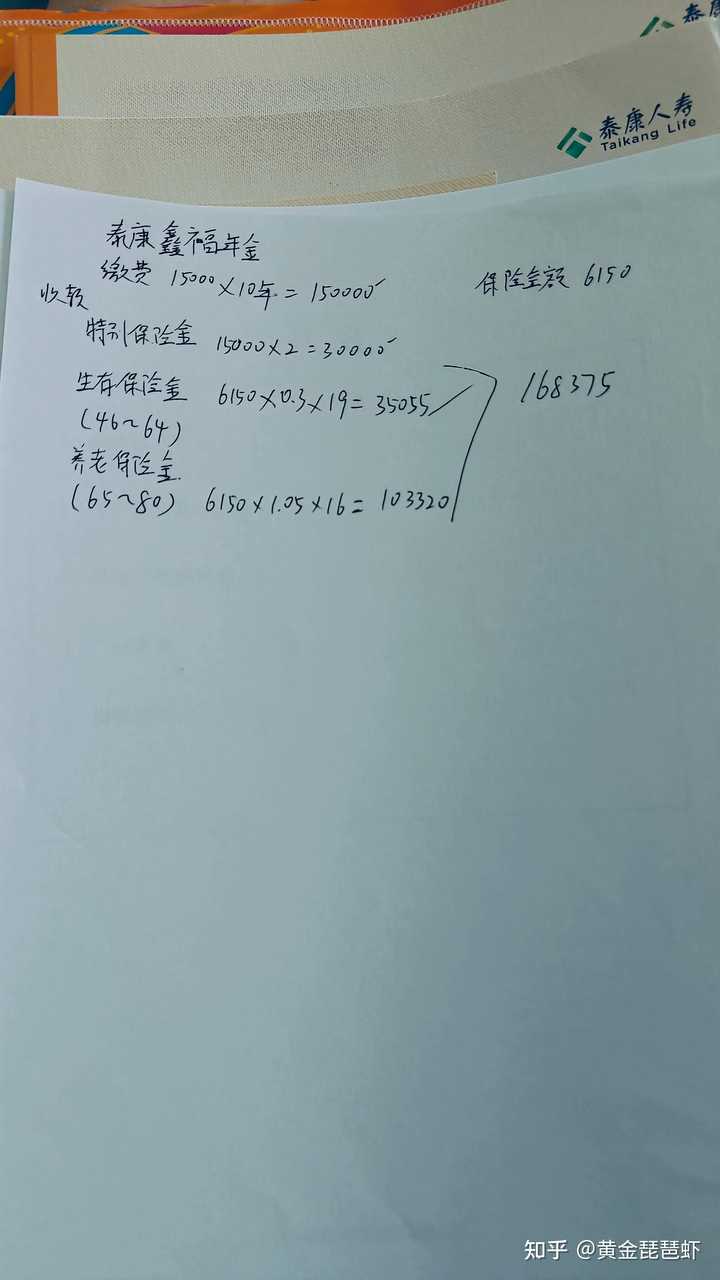 泰康
泰康人寿
Taikang Life
泰康鑫福年金
缴费 15000×10年=150000
保险金额 6150
收款
特别保险金 15000×2=30000
生存保险金 6150×0.3×19=35055
(46~64)
168375
养老保险金
(65~80) 6150×1.05×16=103320
知乎 @黄金琵琶虾